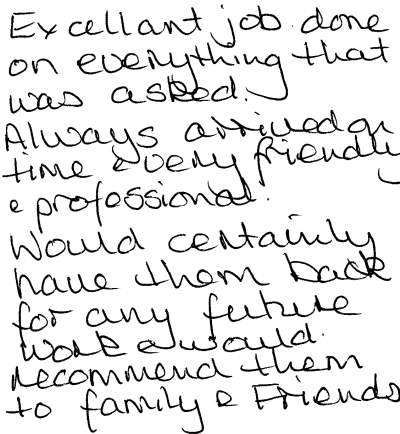 Excellant job done
on everything that
was asked.
Always arrived on
time & very friendly
& professional.
Would certainly
have them back
for any future
work & would
recommend them
to family & Friends